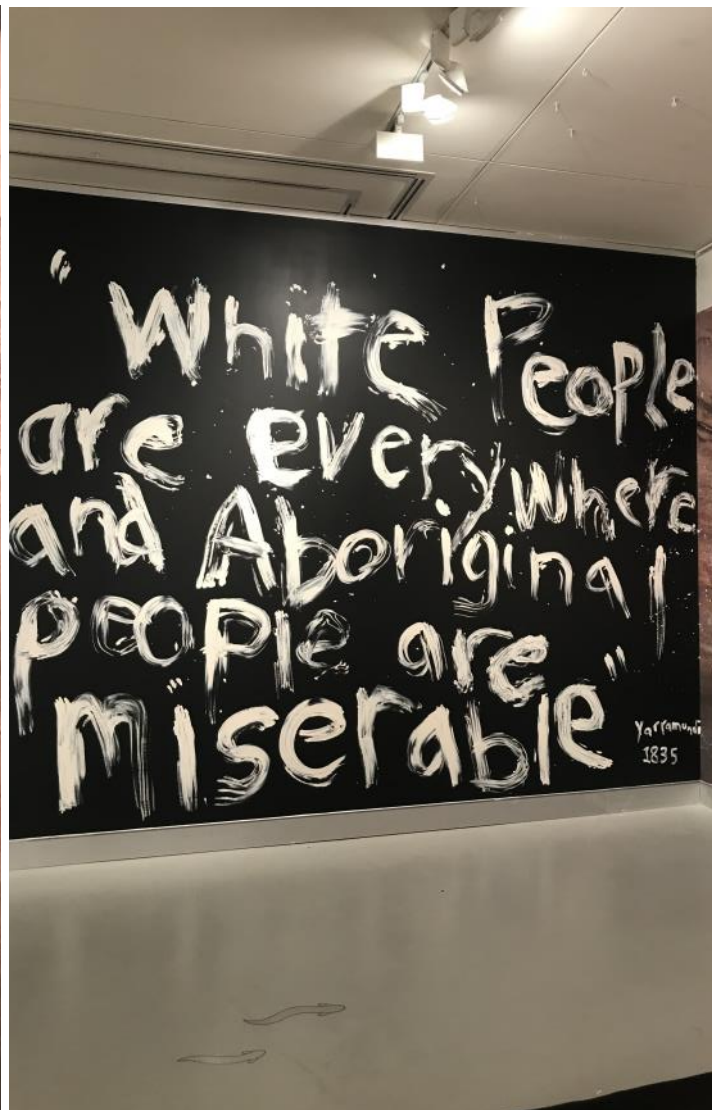 "White People
are everywhere
and Aboriginal
people are
"miserable"
Yarramundi
1835